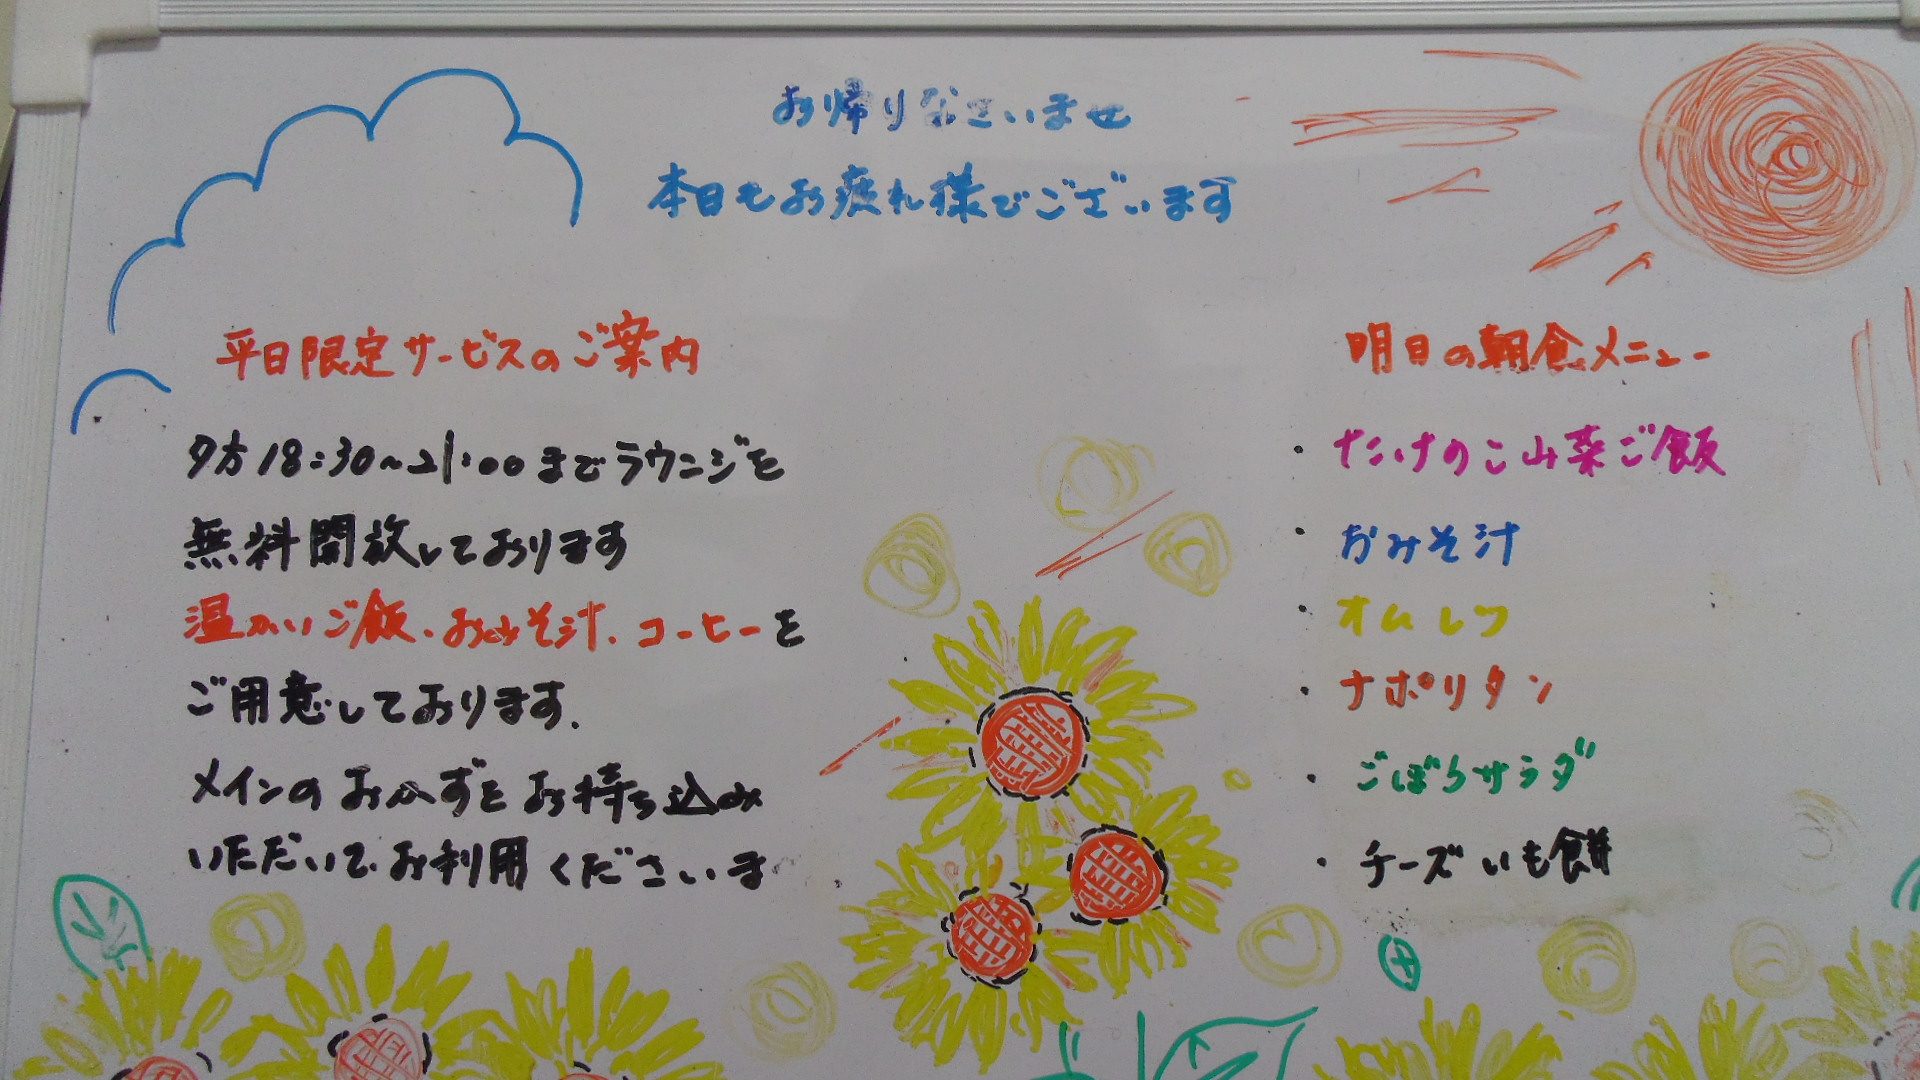 お帰りなさいませ
本日もお疲れ様でございます
平日限定サービスのご案内
夕方18:30~21:00までラウンジを
無料開放しております
温かいご飯、おみそ汁、コーヒーを
ご用意しております.
メインのおかずをお持ち込み
いただいてお利用くださいま
明日の朝食メニュー
・たけのこ山菜ご飯
・おみそ汁
・オムレツ
・ナポリタン
・ごぼうサラダ
・チーズいも餅